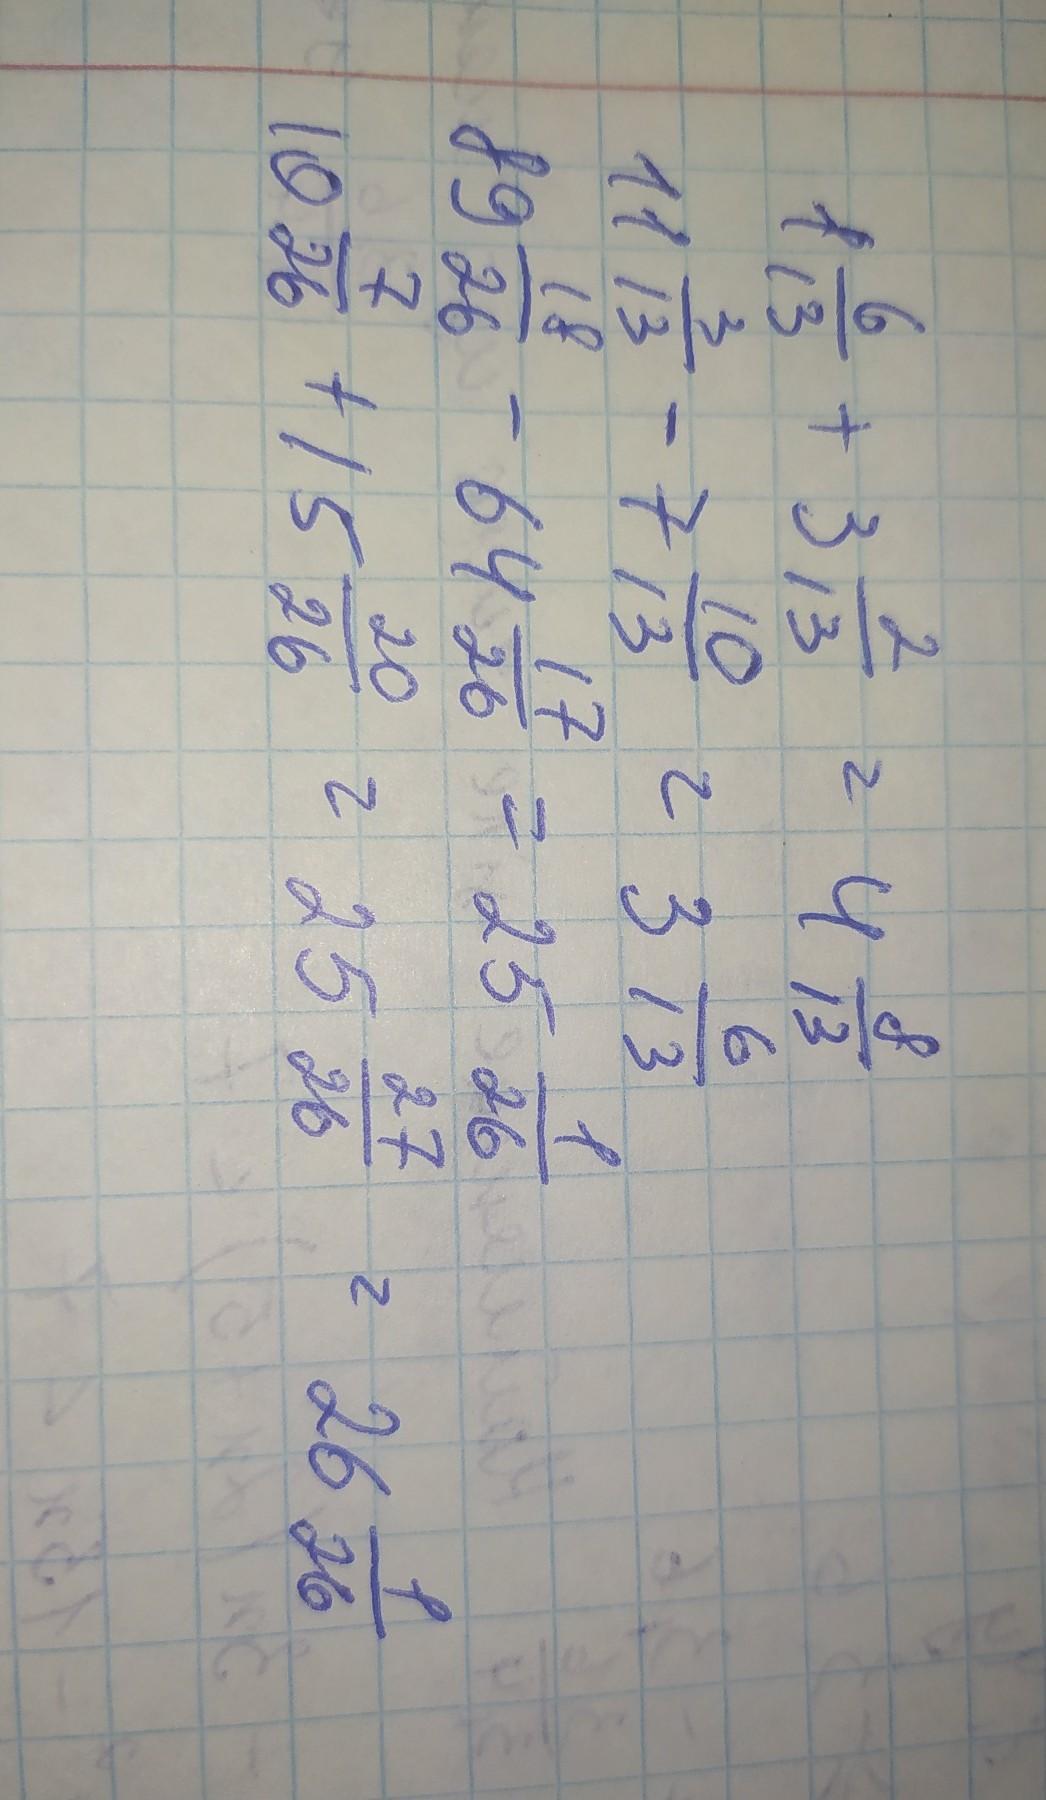 1 6/13 + 3 2/13 = 4 8/13
11 3/13 - 7 10/13 = 3 6/13
89 18/26 - 64 17/26 = 25 1/26
10 7/26 + 15 20/26 = 25 27/26 = 26 1/26